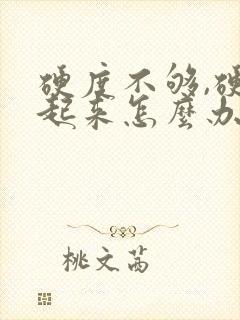 硬度不够,硬
起来怎麽办
桃文茜